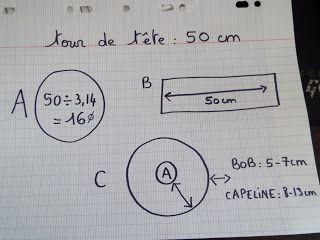 tour de tête : 50 cm
A
50÷3,14
= 16∅
B
50cm
C
A
BOB : 5-7cm
CAPELINE : 8-13cm